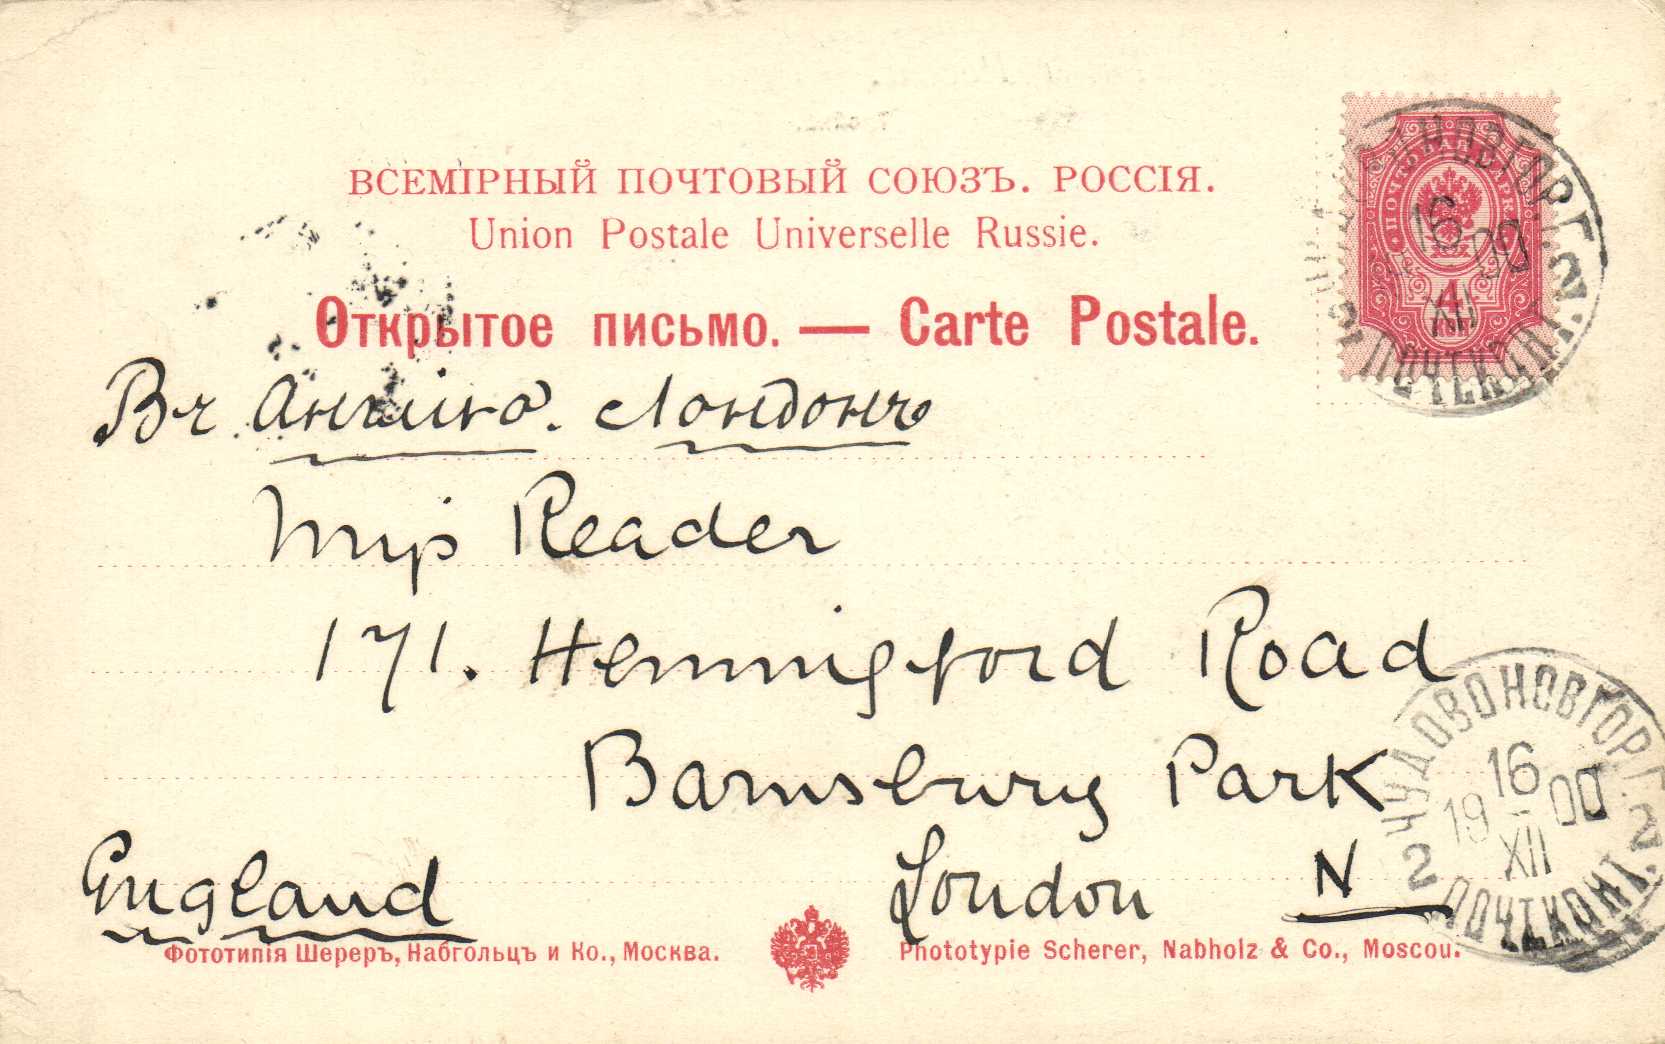 ВСЕМІРНЫЙ ПОЧТОВЫЙ СОЮЗЪ. РОССІЯ.
Union Postale Universelle Russie.
Открытое письмо. — Carte Postale.
Въ Англію. Лондонъ
Miss Reader
171. Hemingford Road
Barnsbury Park
London N
England
Фототипія Шереръ, Набгольцъ и Ко., Москва.
Phototypie Scherer, Nabholz & Co., Moscou.
ПОЧТОВАЯ МАРКА
4
НОВГОР.Г.
16
00
XII
2
ПОЧТ.КОНТ.
2
ЧУДОВО НОВГОР.Г.
16
19 00
XII
2
ПОЧТ.КОНТ.
2